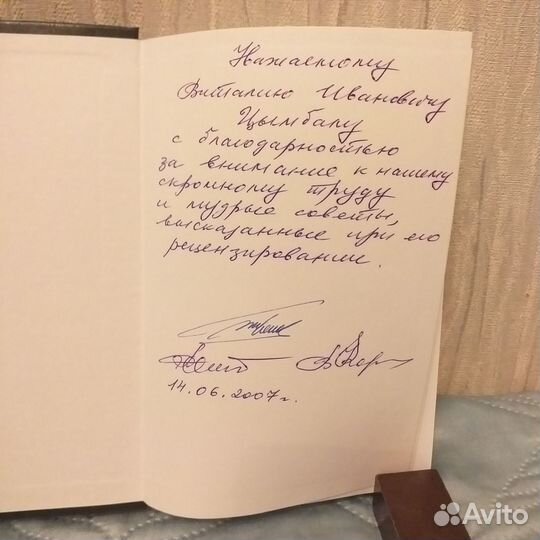 Уважаемому
Виталию Ивановичу
Цымбалу
с благодарностью
за внимание к нашему
скромному труду
и мудрые советы,
высказанные при его
рецензировании.
14.06.2007г.
Avito